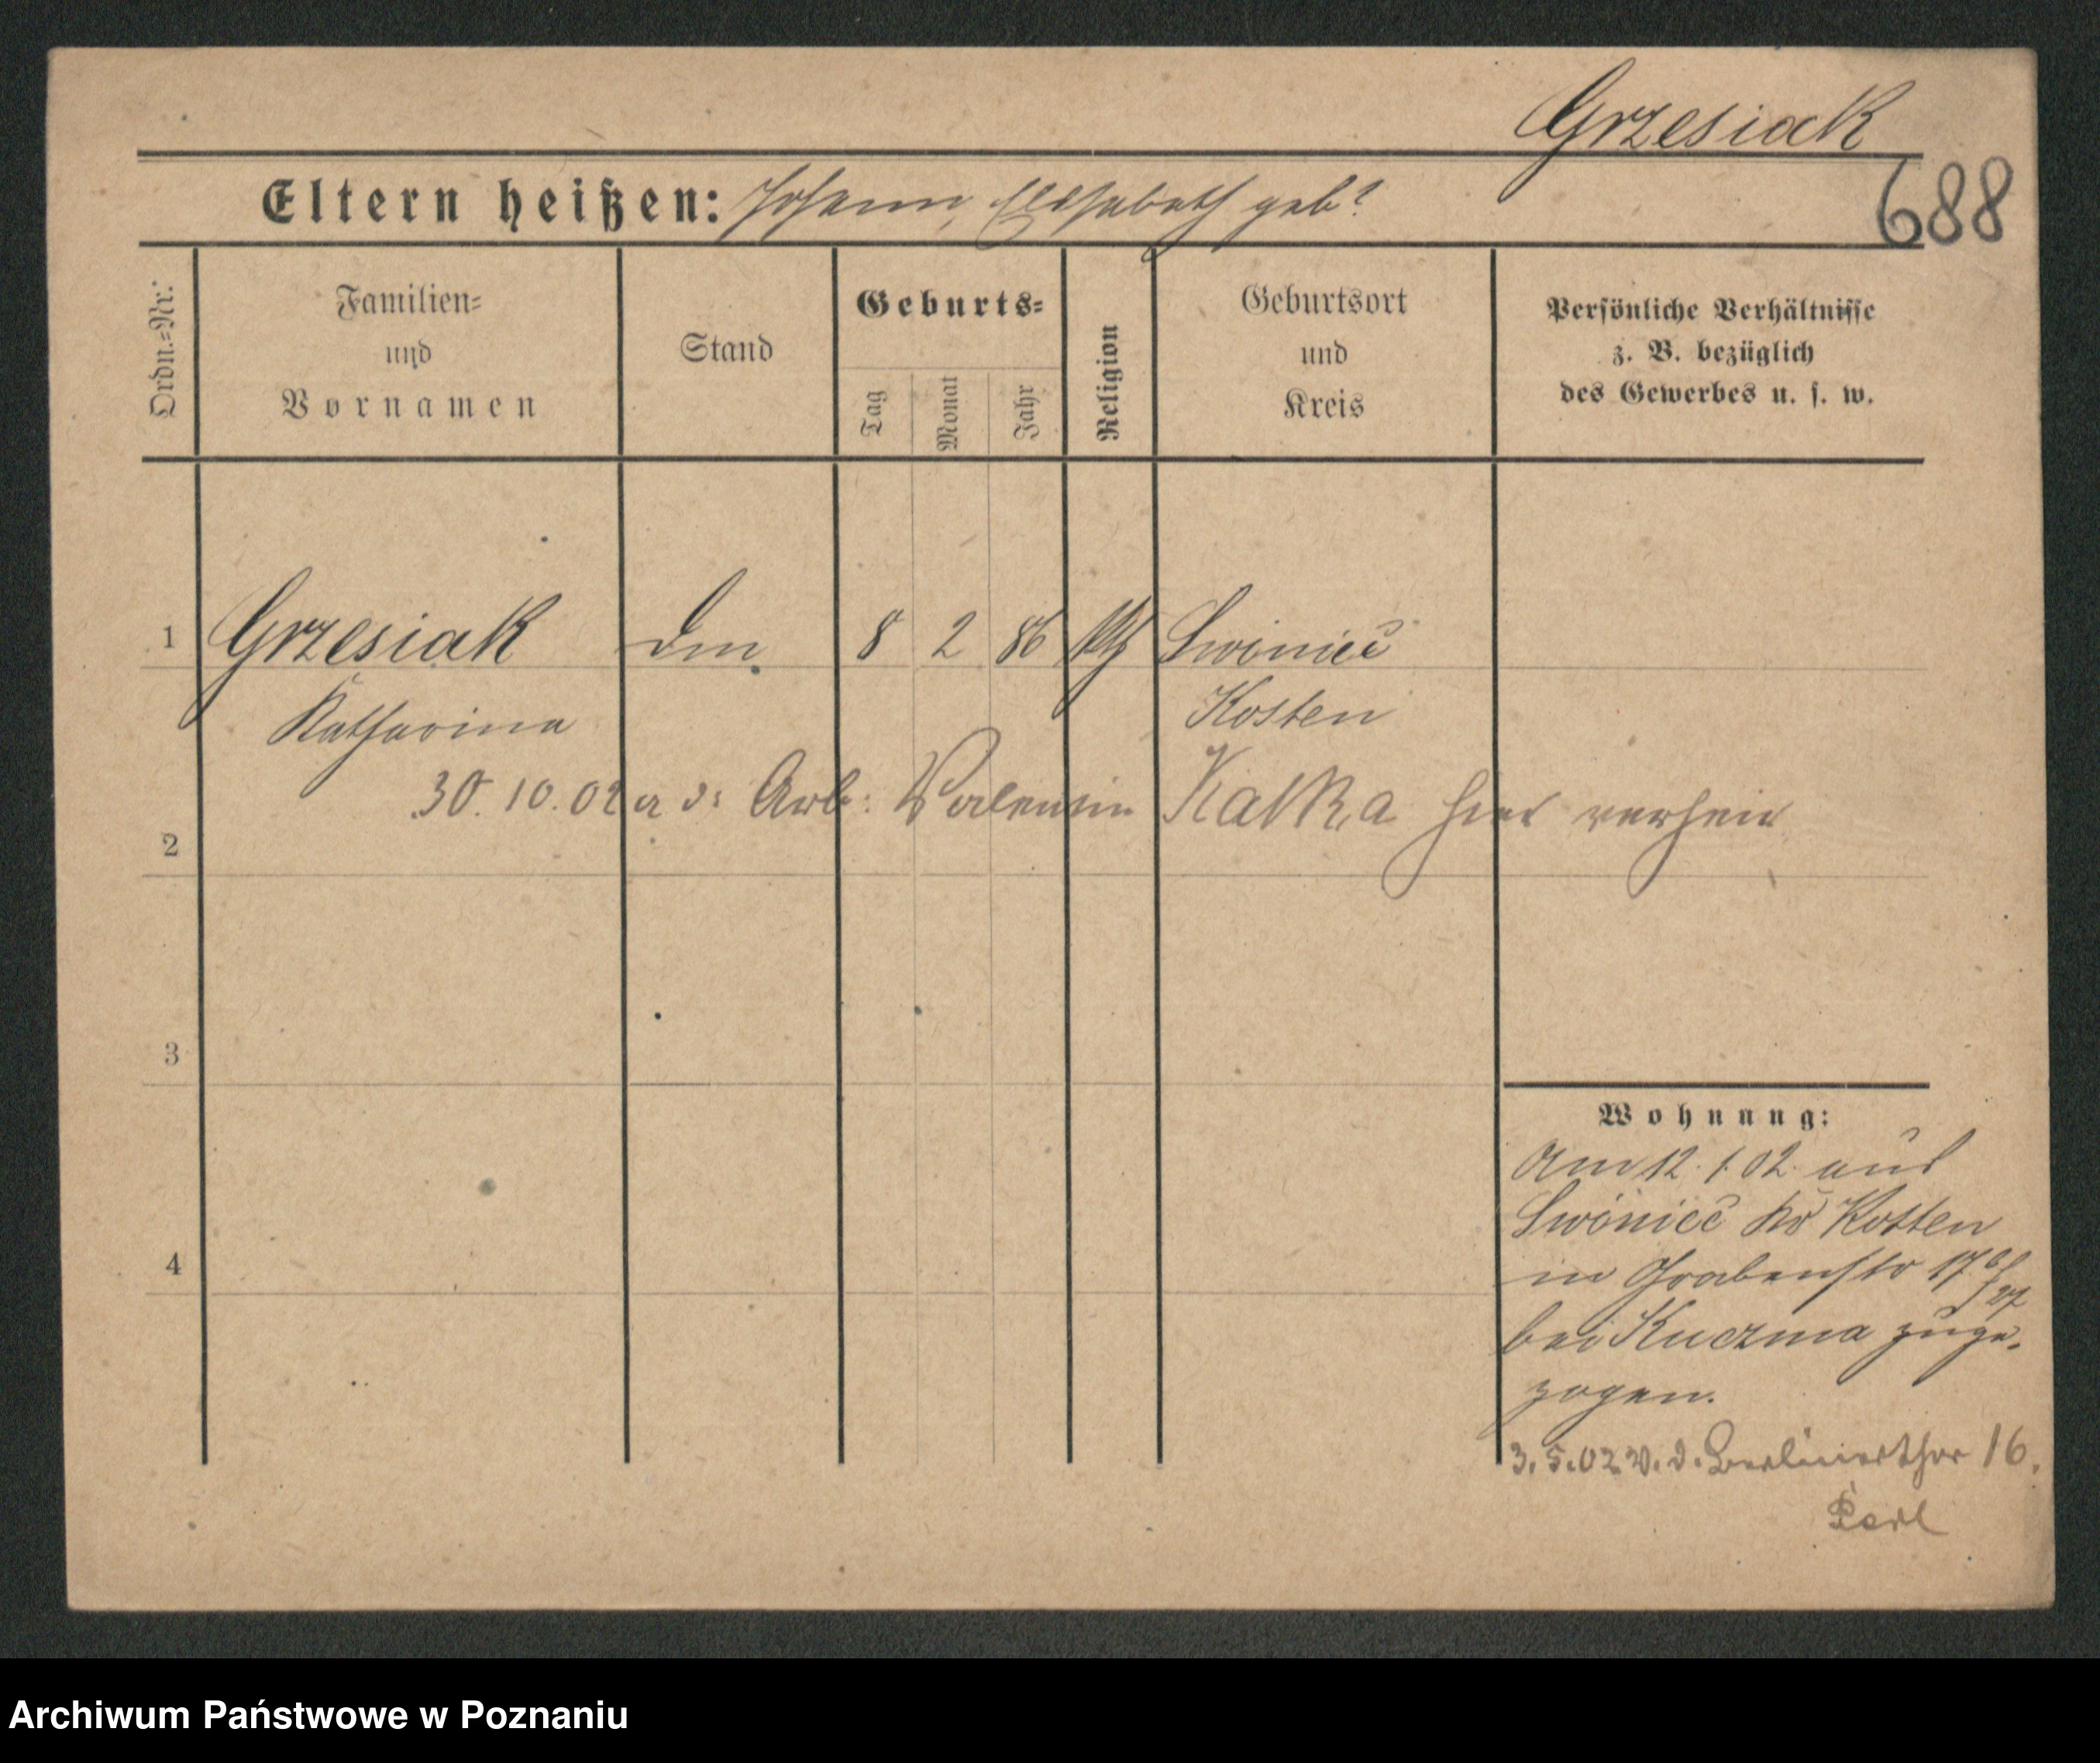 Grzesiak
688
Eltern heißen: Johann, Elisabeth geb?
Ordn.=Nr.
Familien=
und
Vornamen
Stand
Geburts=
Tag
Monat
Jahr
Religion
Geburtsort
und
Kreis
Persönliche Verhältnisse
z. B. bezüglich
des Gewerbes u. s. w.
1 Grzesiak 8 2 86 kth Swiniec
Katharina Kosten
30. 10. 02 a. d. Arb: Valentin Kalka hier verheir
2
3
4
Wohnung:
Am 12. 1. 02. aus
Swiniec Kr Kosten
in Grabenstr 17
bei Kuczma zuge=
zogen.
3. 5. 02 v. d. Berlinerthor 16.
Archiwum Państwowe w Poznaniu